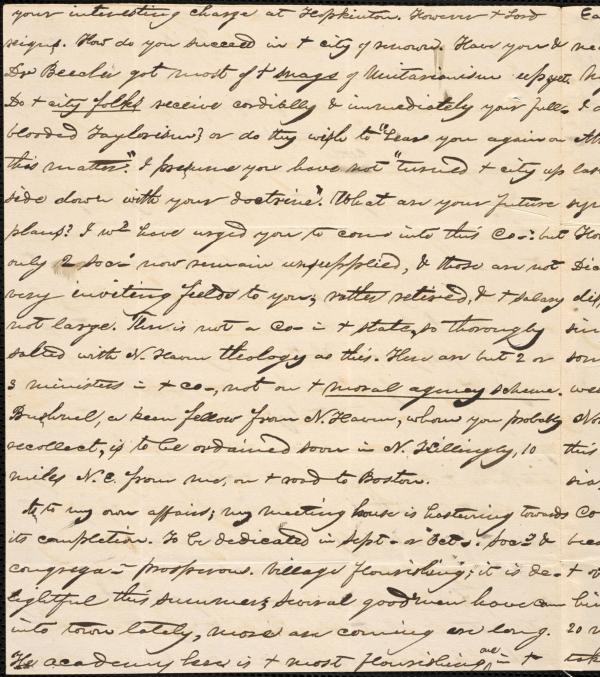 your interesting charge at Hopkinton. However + Lord Ca
reigns. How do you succeed in + city of renown. Have you & ne
Dr Beecher got most of + snags of Unitarianism up yet.
Do + city folks receive cordially & immediately your full- I a
blooded Taylorism; or do they wish to "hear you again on
this matter." I presume you have not "turned + city up las
side down with your doctrine". What are your future sy
plans? I wd have urged you to come into this Co-: but Ho
only 2 Soc- now remain unsupplied, & those are not Dic
very inviting fields to you; rather retired, & + salary dif
not large. There is not a Co- in + state, so thorougly sin
salted with N. Haven theology as this. Here are but 2 or som
3 ministers in + co-, not on + moral agency scheme. we
Bushnel, a keen fellow from N. Haven, whom you probably No
recollect, is to be ordained soon in N. Killingly, 10 this
miles N.E. from me, on + road to Boston. sia
As to my own affairs; my meeting house is hastening towards Co
its completion. To be dedicated in Sept- or Oct-. Soc- & bee
congrega- prosperous. Village flourishing; it is de- + o
lightful this summer; several good men have come hi
into town lately, more are coming ere long. 20
The academy here is + most flourishing one in + tak